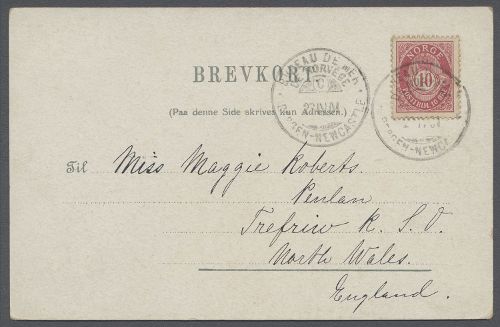 BREVKORT
(Paa denne Side skrives kun Adressen.)
BUREAU DE MER
DE NORVEGE
C
BERGEN-NEWCASTLE
NORGE
10
BERGEN-NEWCASTLE
Til Miss Maggie Roberts.
Penlan
Trefriw R. S. O.
North Wales.
England.